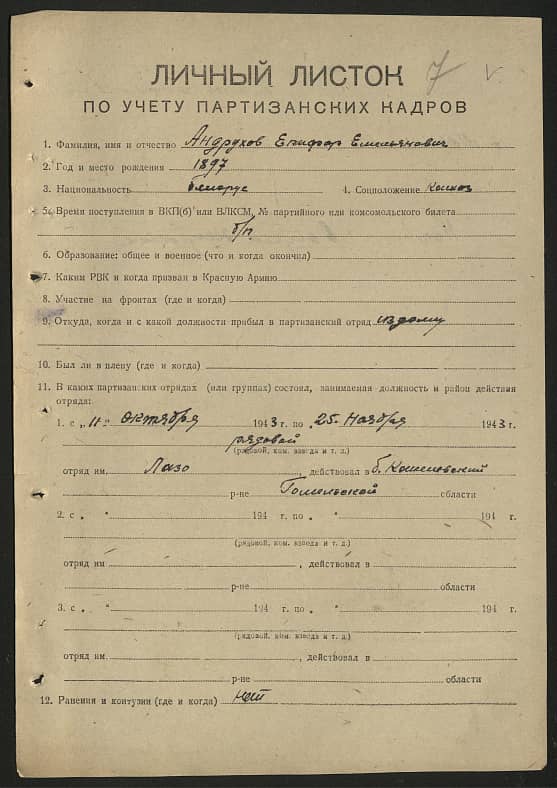 ЛИЧНЫЙ ЛИСТОК 7 v
ПО УЧЕТУ ПАРТИЗАНСКИХ КАДРОВ
1. Фамилия, имя и отчество Андрухов Епифор Емельянович
2. Год и место рождения 1897
3. Национальность белорус 4. Соцположение Колхоз
5. Время поступления в ВКП(б) или ВЛКСМ, № партийного или комсомольского билета
б/п
6. Образование: общее и военное (что и когда окончил)
7. Каким РВК и когда призван в Красную Армию
8. Участие на фронтах (где и когда)
9. Откуда, когда и с какой должности прибыл в партизанский отряд из дому
10. Был ли в плену (где и когда)
11. В каких партизанских отрядах (или группах) состоял, занимаемая должность и район действия
отряда:
1. с „11“ Октября 1943 г. по 25. Ноября 1943 г.
рядовой
(рядовой, ком. взвода и т. д.)
отряд им. Лазо, действовал в б. Кошелевский
р-не Гомельской области
2. с „ “ 194 г. по „ “ 194 г.
(рядовой, ком. взвода и т. д.)
отряд им , действовал в
р-не области
3. с „ “ 194 г. по „ “ 194 г.
(рядовой, ком. взвода и т. д.)
отряд им. , действовал в
р-не области
12. Ранения и контузии (где и когда) нет